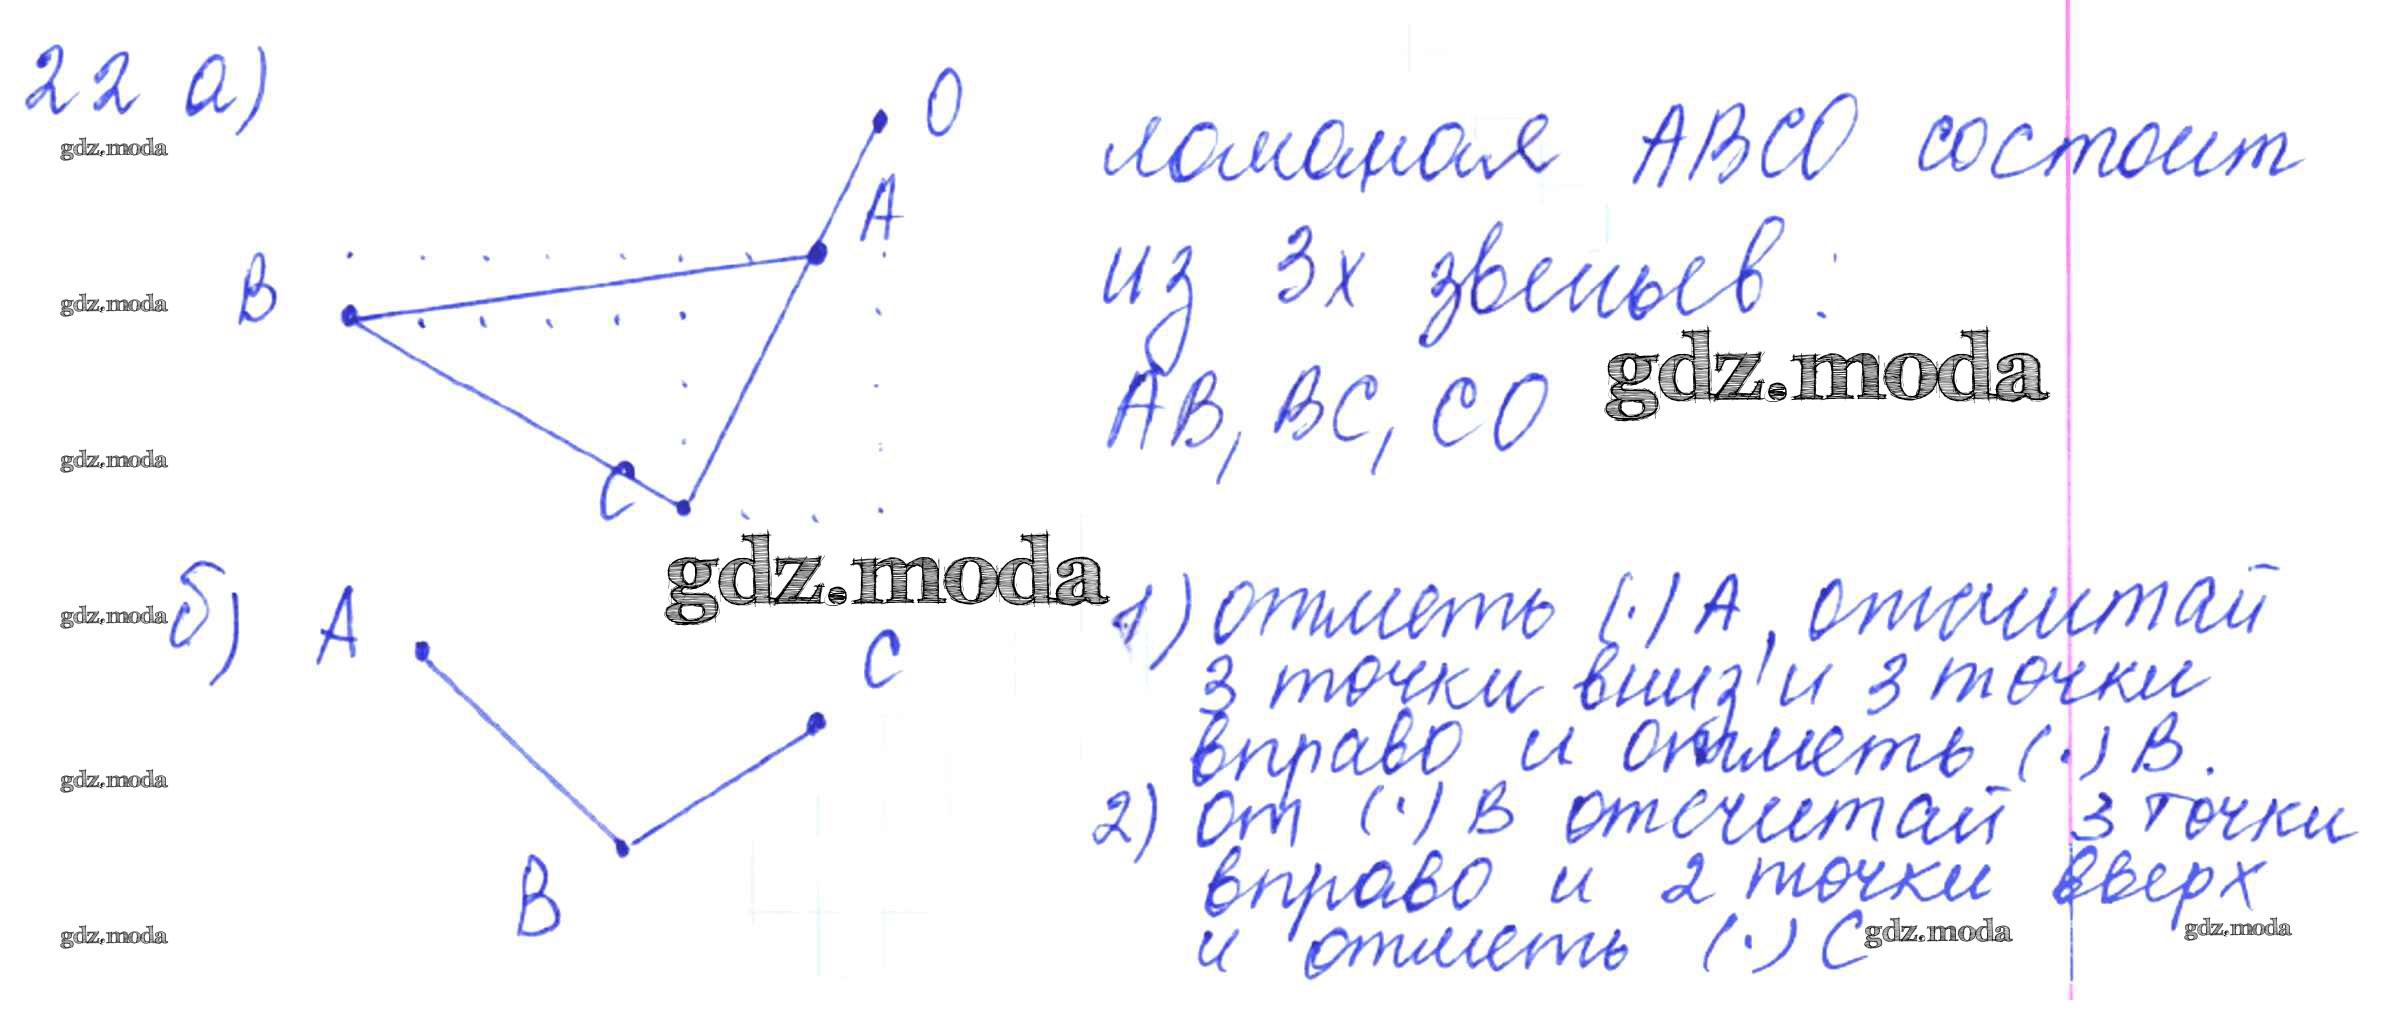 22 а)
O
A
B
C
ломаная ABCO состоит
из 3х звеньев:
AB, BC, CO
б)
A
C
B
1) отметь (.) A, отсчитай
3 точки вниз и 3 точки
вправо и отметь (.) B.
2) от (.) B отсчитай 3 точки
вправо и 2 точки вверх
и отметь (.) C
gdz.moda
gdz.moda
gdz.moda
gdz.moda
gdz.moda
gdz.moda
gdz.moda
gdz.moda
gdz.moda
gdz.moda